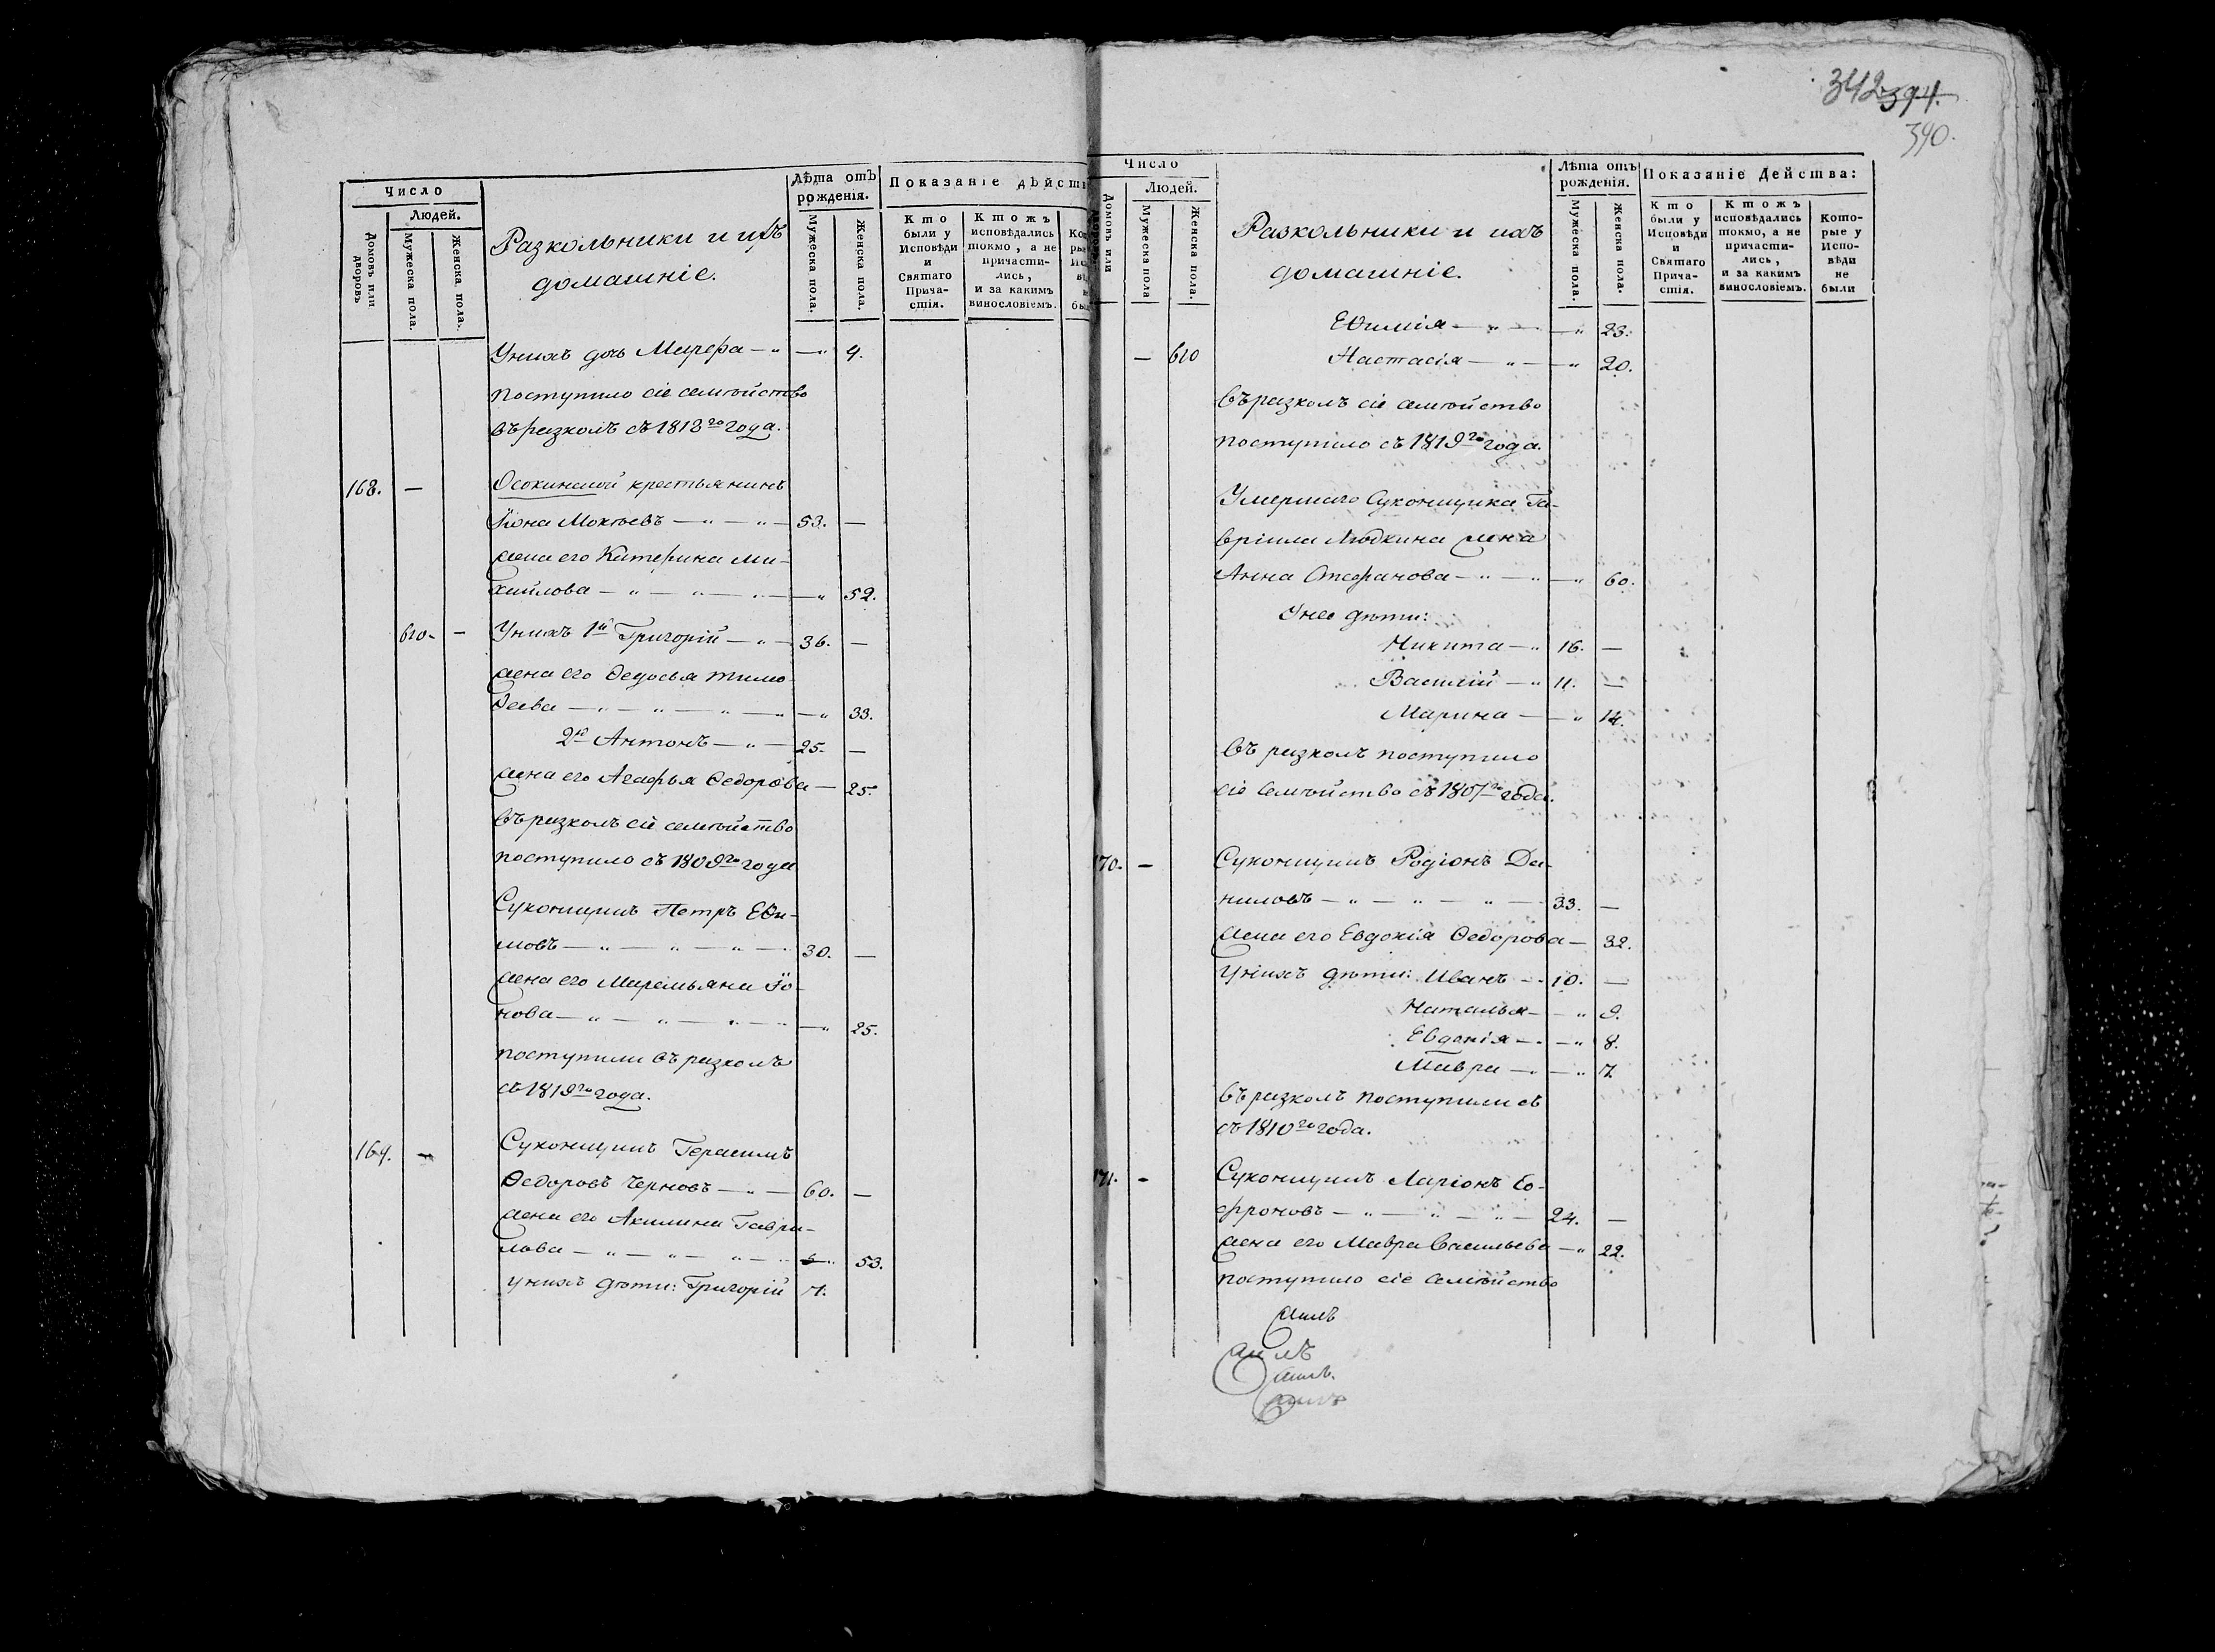 342 394.
390.
Число
Людей.
Домовъ или дворовъ
Мужеска пола.
Женска пола.
Разкольники и ихъ
домашніе.
Лѣта отъ рожденія.
Мужеска пола.
Женска пола.
Показаніе дѣйст
Кто были у Исповѣди и Святаго Прича-стія.
Ктожъ исповѣдались токмо, а не причасти-лись, и за какимъ винословіемъ.
Унихъ дочь Марфа — „ — „ 4.
поступило сіе семѣйство
въ разколъ съ 1813го года.
168. — Осокинской крестьянинъ
Іона Мокѣевъ — „ — „ — 53. —
жена его Катерина Ми-
хайлова — „ — „ — „ 52.
610. — Унихъ 1й Григорій — „ — 36. —
жена его Ѳедосья Тимо
ѳеева — „ — „ — „ — „ 33.
2й Антонъ — „ — 25. —
жена его Агафья Ѳедорова — 25.
въ разколъ сіе семѣйство
поступило съ 1809го года
Суконщикъ Петръ Еѳи-
мовъ — „ — „ — „ — 30. —
жена его Маремьяна Іо-
нова — „ — „ — „ — „ 25.
поступили въ разколъ
съ 1819го года.
169. — Суконщикъ Герасимъ
Ѳедоровъ Черновъ — „ — 60. —
жена его Акилина Гаври-
лова — „ — „ — „ 53.
унихъ дѣти: Григорій 7.
Число
Людей.
Домовъ или
Мужеска пола
Женска пола.
Разкольники и ихъ
домашніе.
Лѣта отъ рожденія.
Мужеска пола.
Женска пола.
Показаніе Действа:
Кто были у Исповѣди и Святаго Прича-стія.
Ктожъ исповѣдались токмо, а не причасти-лись, и за какимъ винословіемъ.
Кото-рые у Испо-вѣди не были
Еѳимія — „ — „ 23.
— 610 Настасія — „ — „ 20.
въ разколъ сіе семѣйство
поступило съ 1819го года.
Умершаго Суконщика Га-
вріила Людкина жена
Анна Стефанова — „ — „ 60.
Унее дѣти:
Никита — „ 16. —
Василій — „ 11. —
Марина — „ 14.
въ разколъ поступило
сіе семѣйство съ 1807го года.
170. — Суконщикъ Родіонъ Да-
ниловъ — „ — „ — „ — 33. —
жена его Евдокія Ѳедорова — 32.
Унихъ дѣти: Иванъ — 10. —
Наталья — „ 9.
Евдокія — „ 8.
Мавра — „ 7.
въ разколъ поступили съ
съ 1810го года.
171. — Суконщикъ Ларіонъ Со-
фроновъ — „ — „ — „ — 24. —
жена его Мавра Васильева — „ 22.
поступило сіе семѣйство